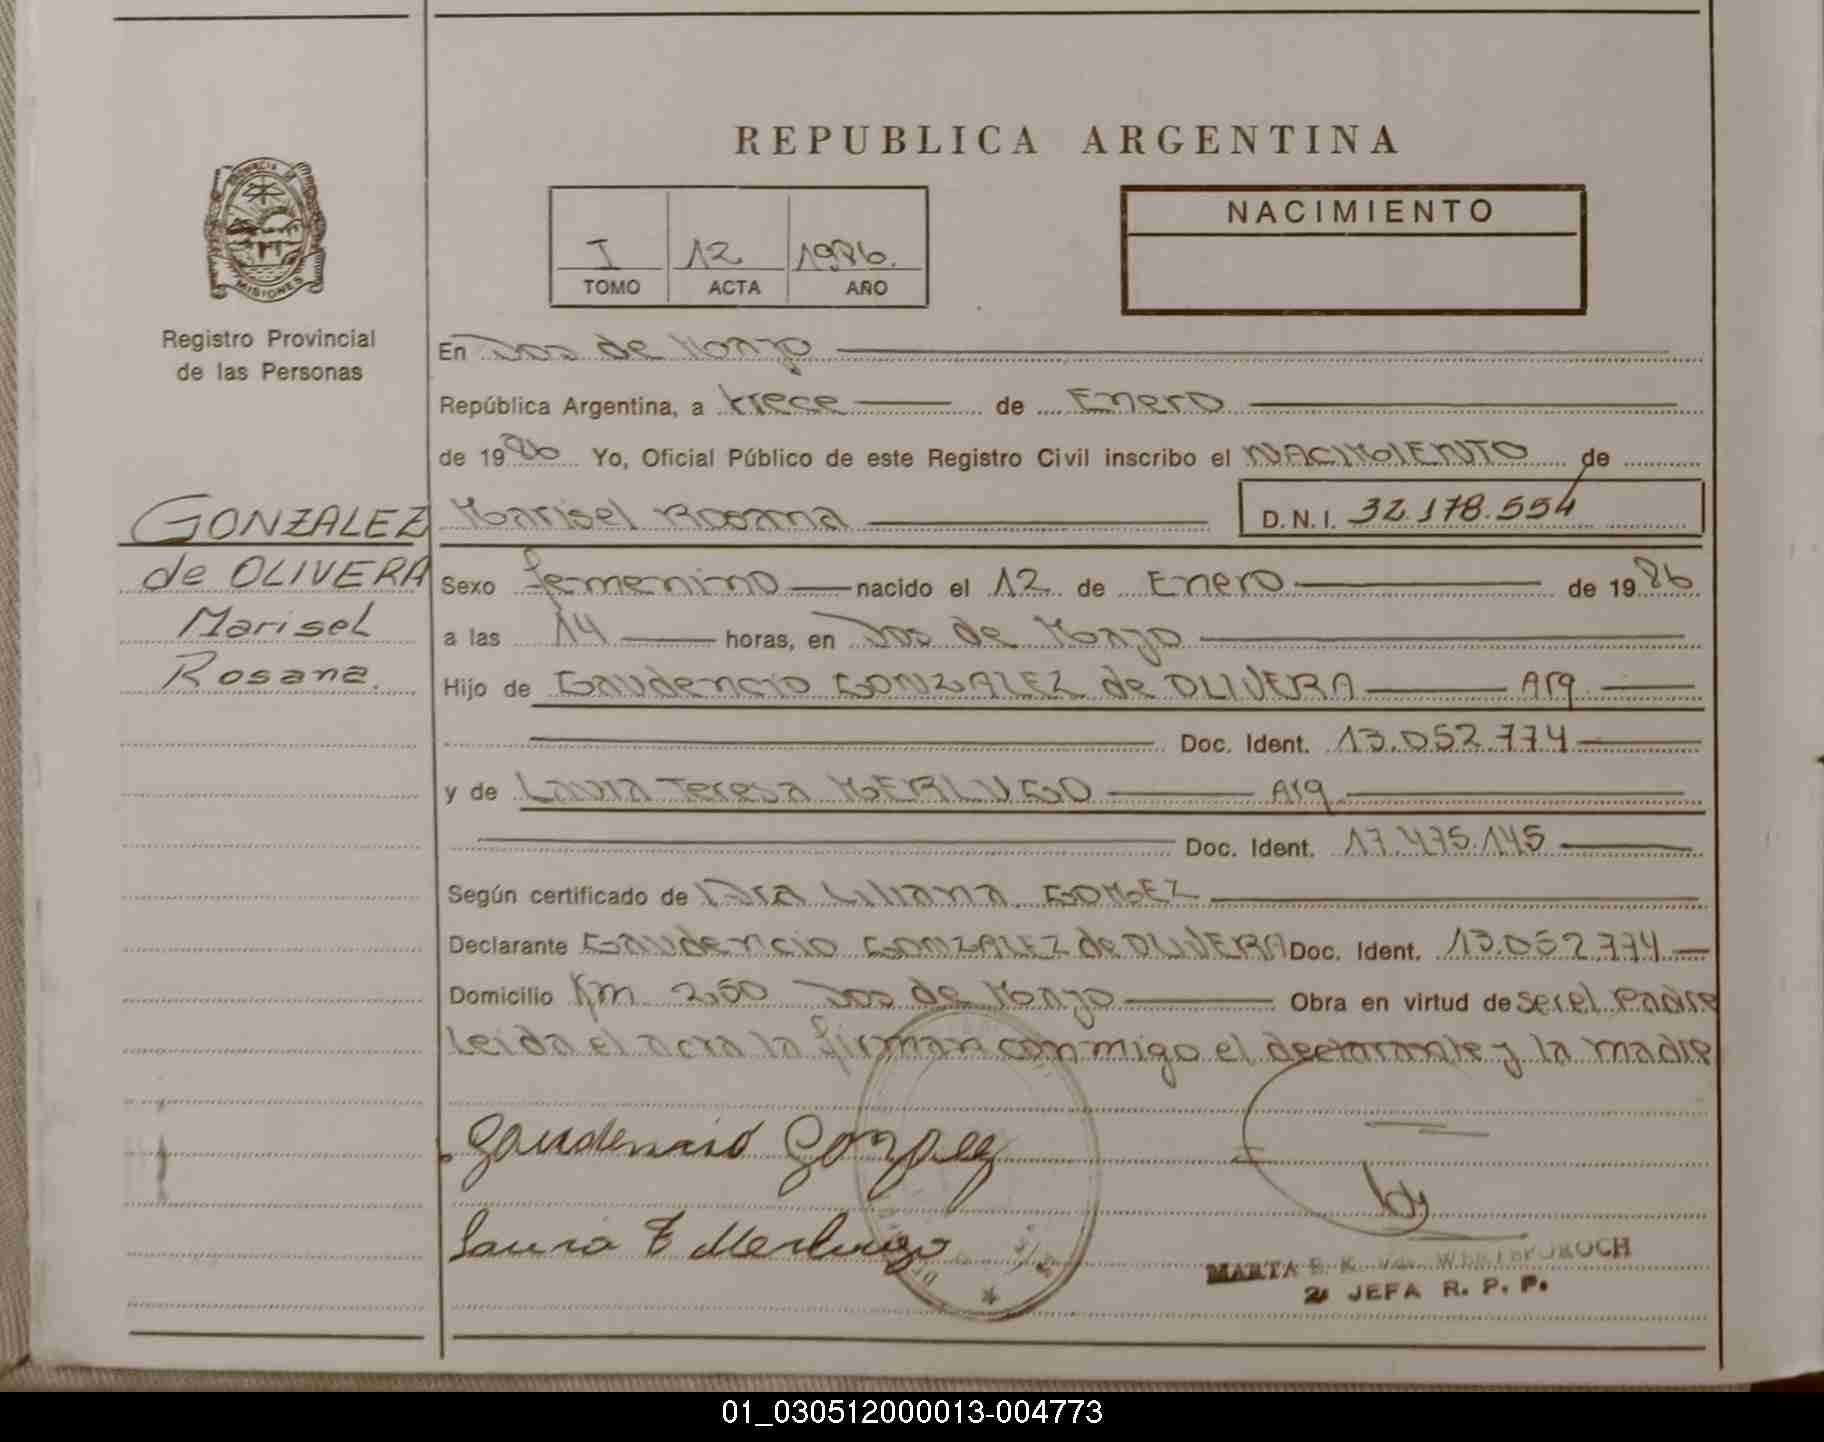 REPUBLICA ARGENTINA
PROVINCIA DE
MISIONES
Registro Provincial
de las Personas
I 12 1986.
TOMO ACTA AÑO
NACIMIENTO
En Dos de Mayo
República Argentina, a trece de Enero
de 1986 Yo, Oficial Público de este Registro Civil inscribo el NACIMIENTO de
GONZALEZ
de OLIVERA
Marisel
Rosana.
Marisel Rosana D.N.I. 32.178.554
Sexo femenino nacido el 12 de Enero de 1986
a las 14 horas, en Dos de Mayo
Hijo de Gaudencio GONZALEZ de OLIVERA Arg
Doc. Ident. 13.052.774
y de Laura Teresa MERLUGO Arg
Doc. Ident. 17.475.145
Según certificado de Dra Liliana GOMEZ
Declarante Gaudencio GONZALEZ de OLIVERA Doc. Ident. 13.052.774
Domicilio Km 2,50 Dos de Mayo Obra en virtud de ser el Padre
Leida el acta la firman conmigo el declarante y la madre
Gaudencio Gonzalez
Laura T Merlugo
MARTA
JEFA R. P. P.
01_030512000013-004773